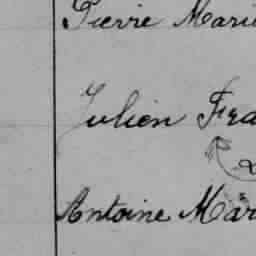 Pierre Marie
Julien Fra
Antoine Mar